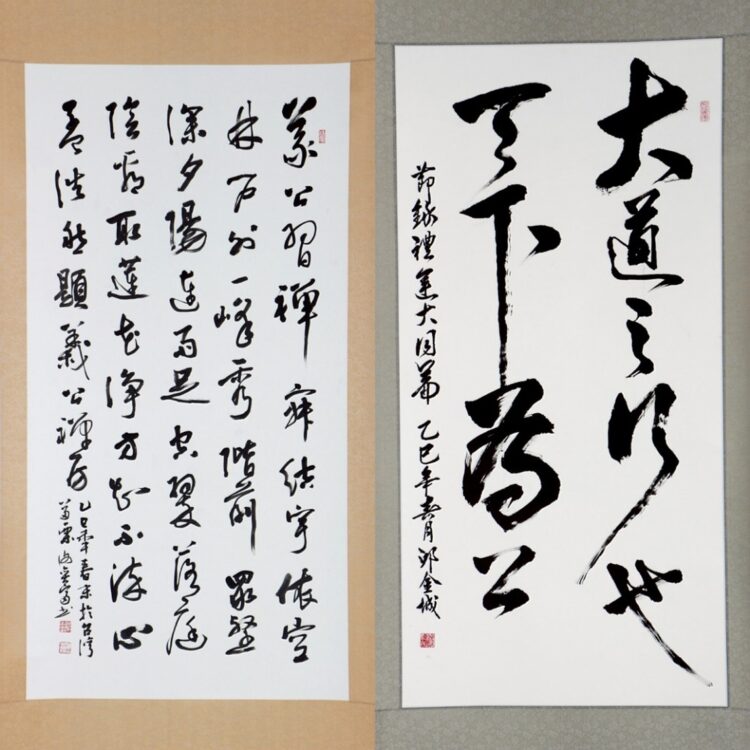 義公習禪寂結宇依空
林戶外一峰秀階前眾壑
深夕陽連雨足空翠落庭
陰看取蓮花淨方知不染心
孟浩然題義公禪房
乙巳年春末於台灣
苗栗
大道之行也
天下為公
節錄禮運大同篇 乙巳年春月 邱金城